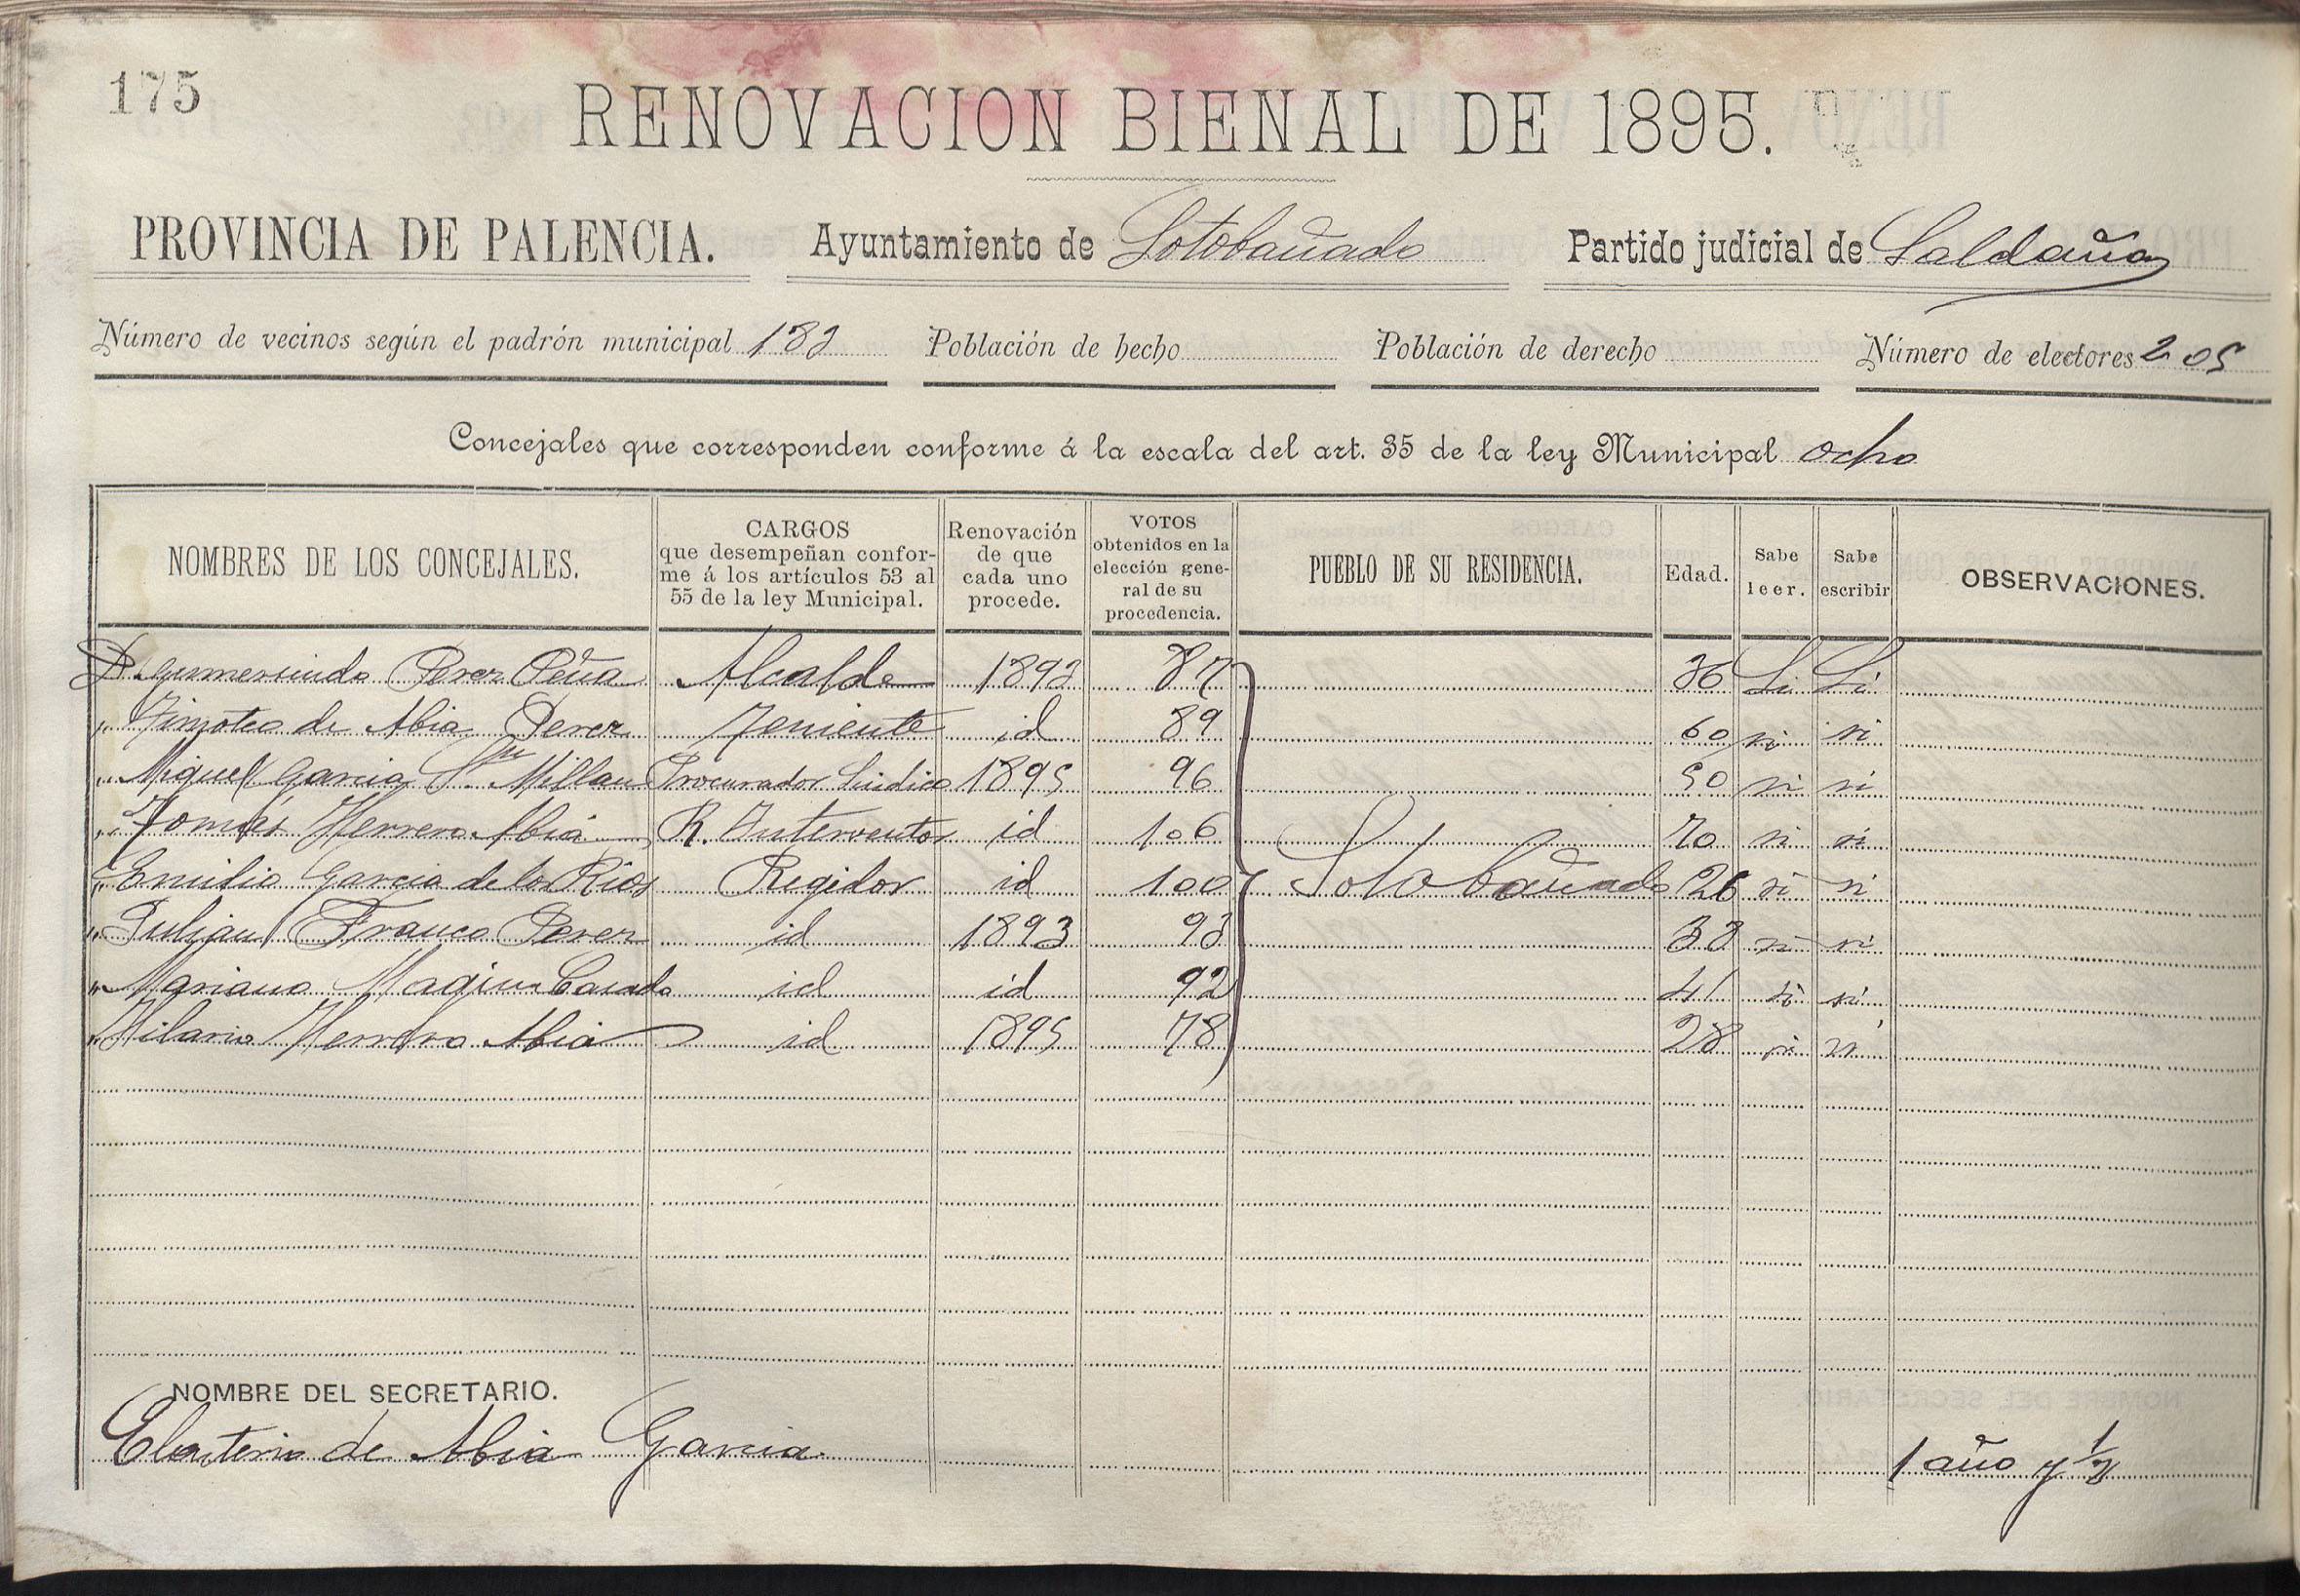 175
RENOVACION BIENAL DE 1895.
PROVINCIA DE PALENCIA. Ayuntamiento de Sotobañado Partido judicial de Saldaña
Número de vecinos según el padrón municipal 182 Población de hecho Población de derecho Número de electores 205
Concejales que corresponden conforme á la escala del art. 35 de la ley Municipal ocho
NOMBRES DE LOS CONCEJALES. CARGOS que desempeñan conforme á los artículos 53 al 55 de la ley Municipal. Renovación de que cada uno procede. VOTOS obtenidos en la elección general de su procedencia. PUEBLO DE SU RESIDENCIA. Edad. Sabe leer. Sabe escribir OBSERVACIONES.
D. Gumersindo Perez Peña Alcalde 1893 87 36 Si Si
" Timoteo de Abia Perez Teniente id 89 60 si si
" Miguel Garcia Sn. Millan Procurador Sindico 1895 96 50 si si
" Tomás Herrero Abia R. Interventor id 106 70 si si
" Emilio Garcia de los Rios Regidor id 100 Sotobañado 26 si si
" Julian Franco Perez id 1893 93 33 si si
" Mariano Magin Casado id id 92 41 si si
" Hilario Herrero Abia id 1895 78 28 si si
NOMBRE DEL SECRETARIO.
Eleuterio de Abia Garcia 1 año y 1/2